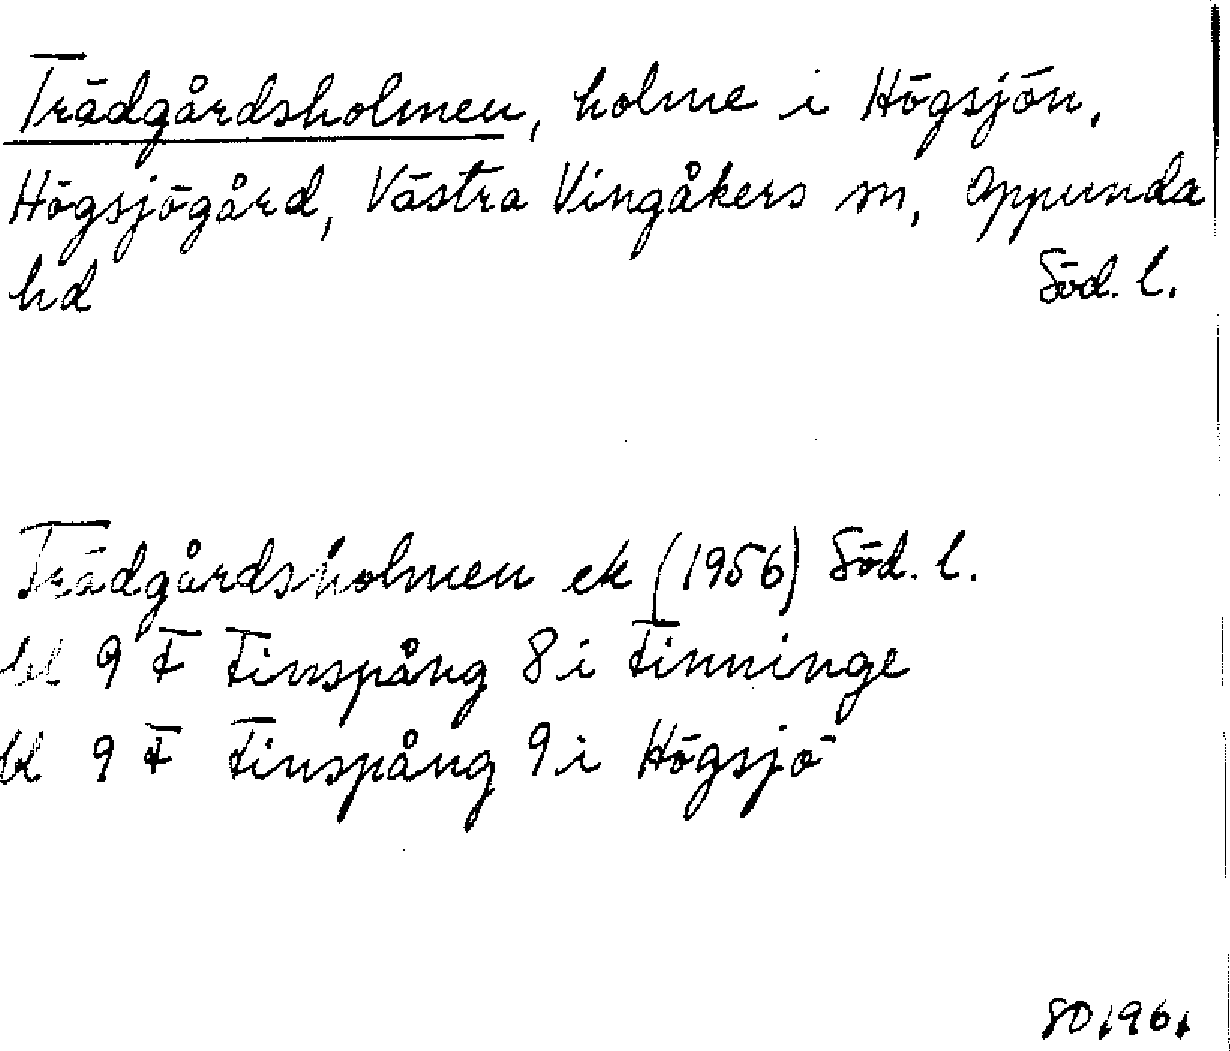 Trädgårdsholmen, holme i Högsjön,
Högsjögård, Västra Vingåkers sn, Oppunda
hd Söd. l.
Trädgårdsholmen ek (1956) Söd. l.
bl 9 F Finspång 8 i Finninge
bl 9 F Finspång 9 i Högsjö